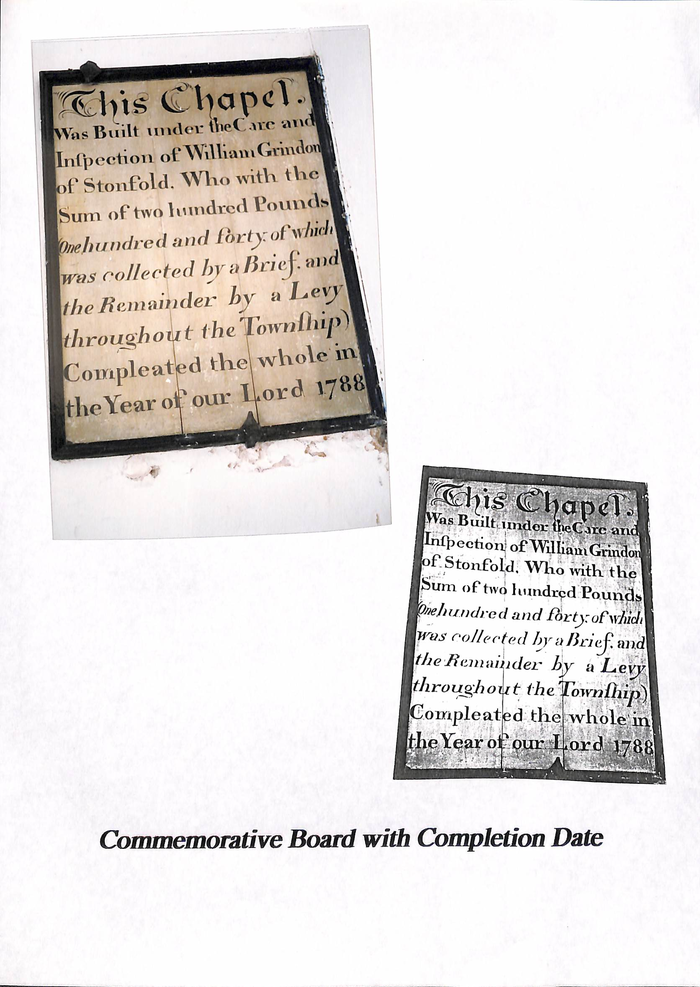 This Chapel.
Was Built under the Care and
Inſpection of William Grindon
of Stonfold. Who with the
Sum of two hundred Pounds
(One hundred and forty of which
was collected by a Brief. and
the Remainder by a Levy
throughout the Townſhip)
Compleated the whole in
the Year of our Lord 1788
This Chapel.
Was Built under the Care and
Inſpection of William Grindon
of Stonfold. Who with the
Sum of two hundred Pounds
(One hundred and forty of which
was collected by a Brief. and
the Remainder by a Levy
throughout the Townſhip)
Compleated the whole in
the Year of our Lord 1788
Commemorative Board with Completion Date